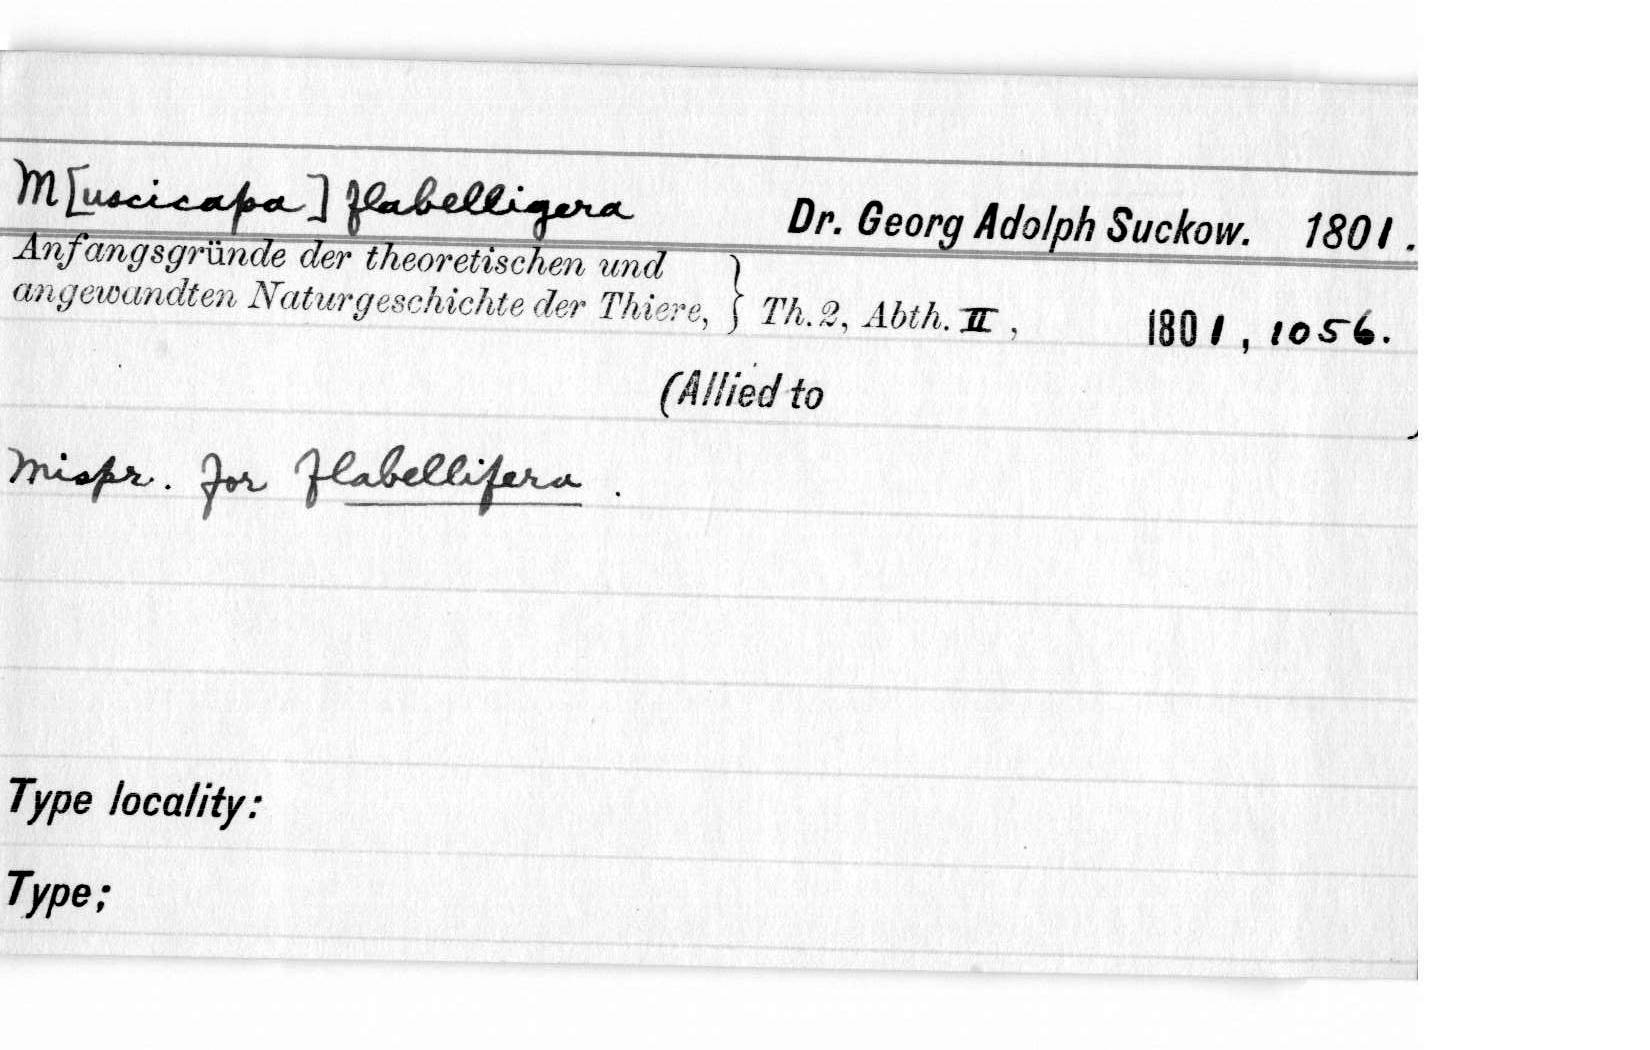 M[uscicapa] flabelligera Dr. Georg Adolph Suckow. 1801.
Anfangsgründe der theoretischen und
angewandten Naturgeschichte der Thiere, } Th. 2, Abth. II, 1801, 1056.
(Allied to )
Mispr. for flabellifera.
Type locality:
Type;